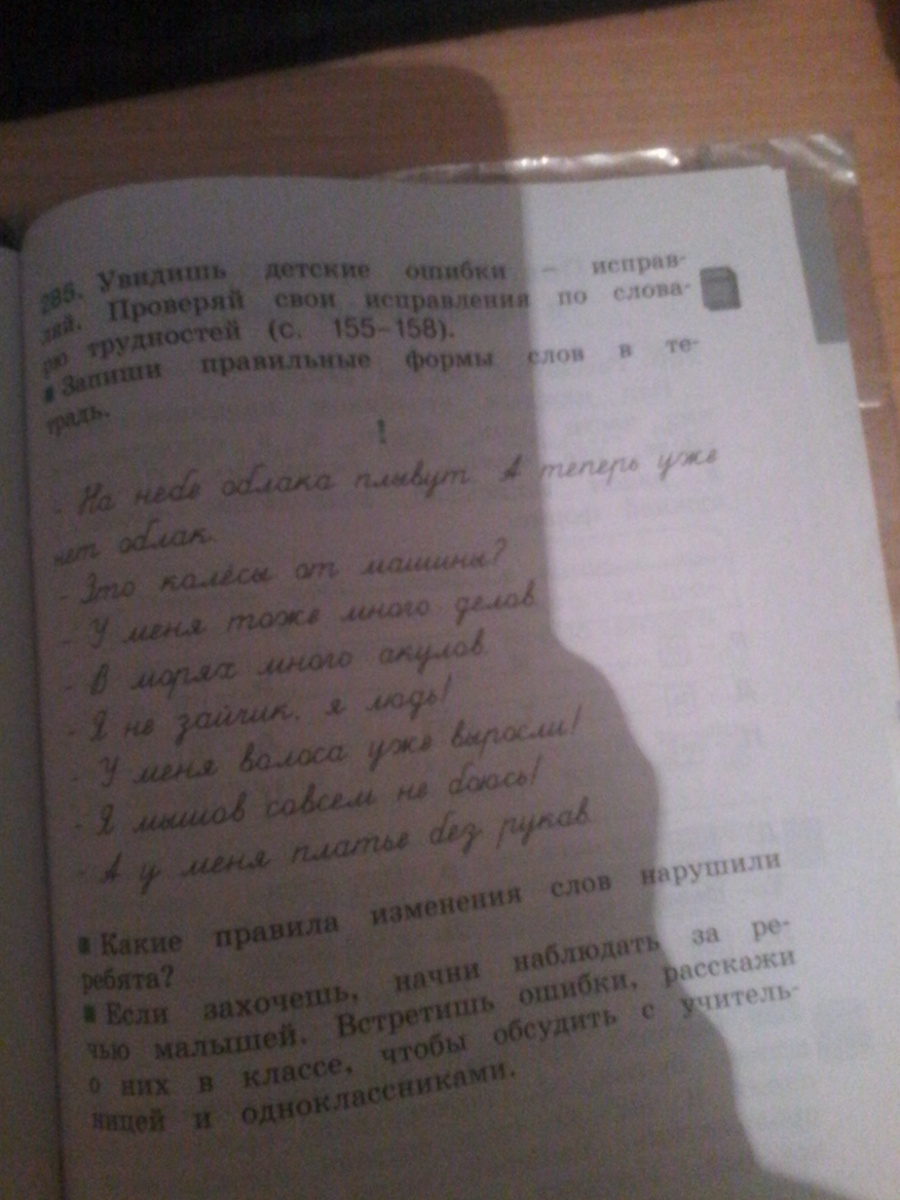 285. Увидишь детские ошибки – исправ-
ляй. Проверяй свои исправления по слова-
рю трудностей (с. 155–158).
Запиши правильные формы слов в те-
традь.
!
- На небе облака плывут. А теперь уже
нет облак.
- Это колёсы от машины?
- У меня тоже много делов.
- В морях много акулов.
- Я не зайчик, я людь!
- У меня волоса уже выросли!
- Я мышов совсем не боюсь!
- А у меня платье без рукав.
Какие правила изменения слов нарушили
ребята?
Если захочешь, начни наблюдать за ре-
чью малышей. Встретишь ошибки, расскажи
о них в классе, чтобы обсудить с учитель-
ницей и одноклассниками.